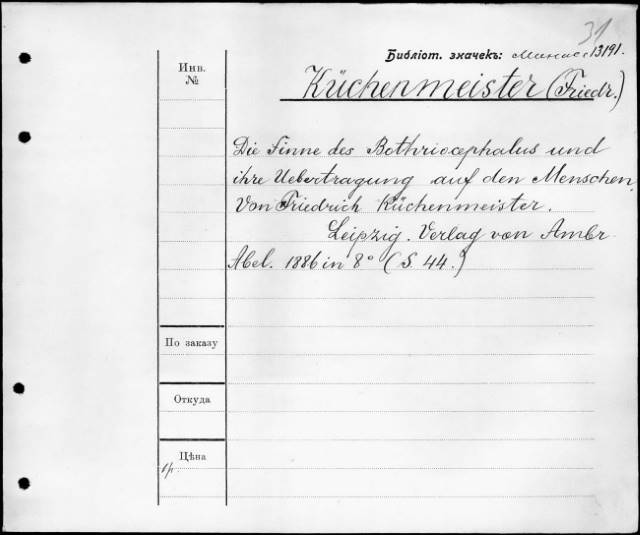 31
Библіот. значекъ: 13191.
Инв.
№
Küchenmeister (Friedr.)
Die Finne des Bothriocephalus und
ihre Uebertragung auf den Menschen.
Von Friedrich Küchenmeister.
Leipzig. Verlag von Ambr.
Abel. 1886 in 8° (S. 44.)
По заказу
Откуда
Цѣна